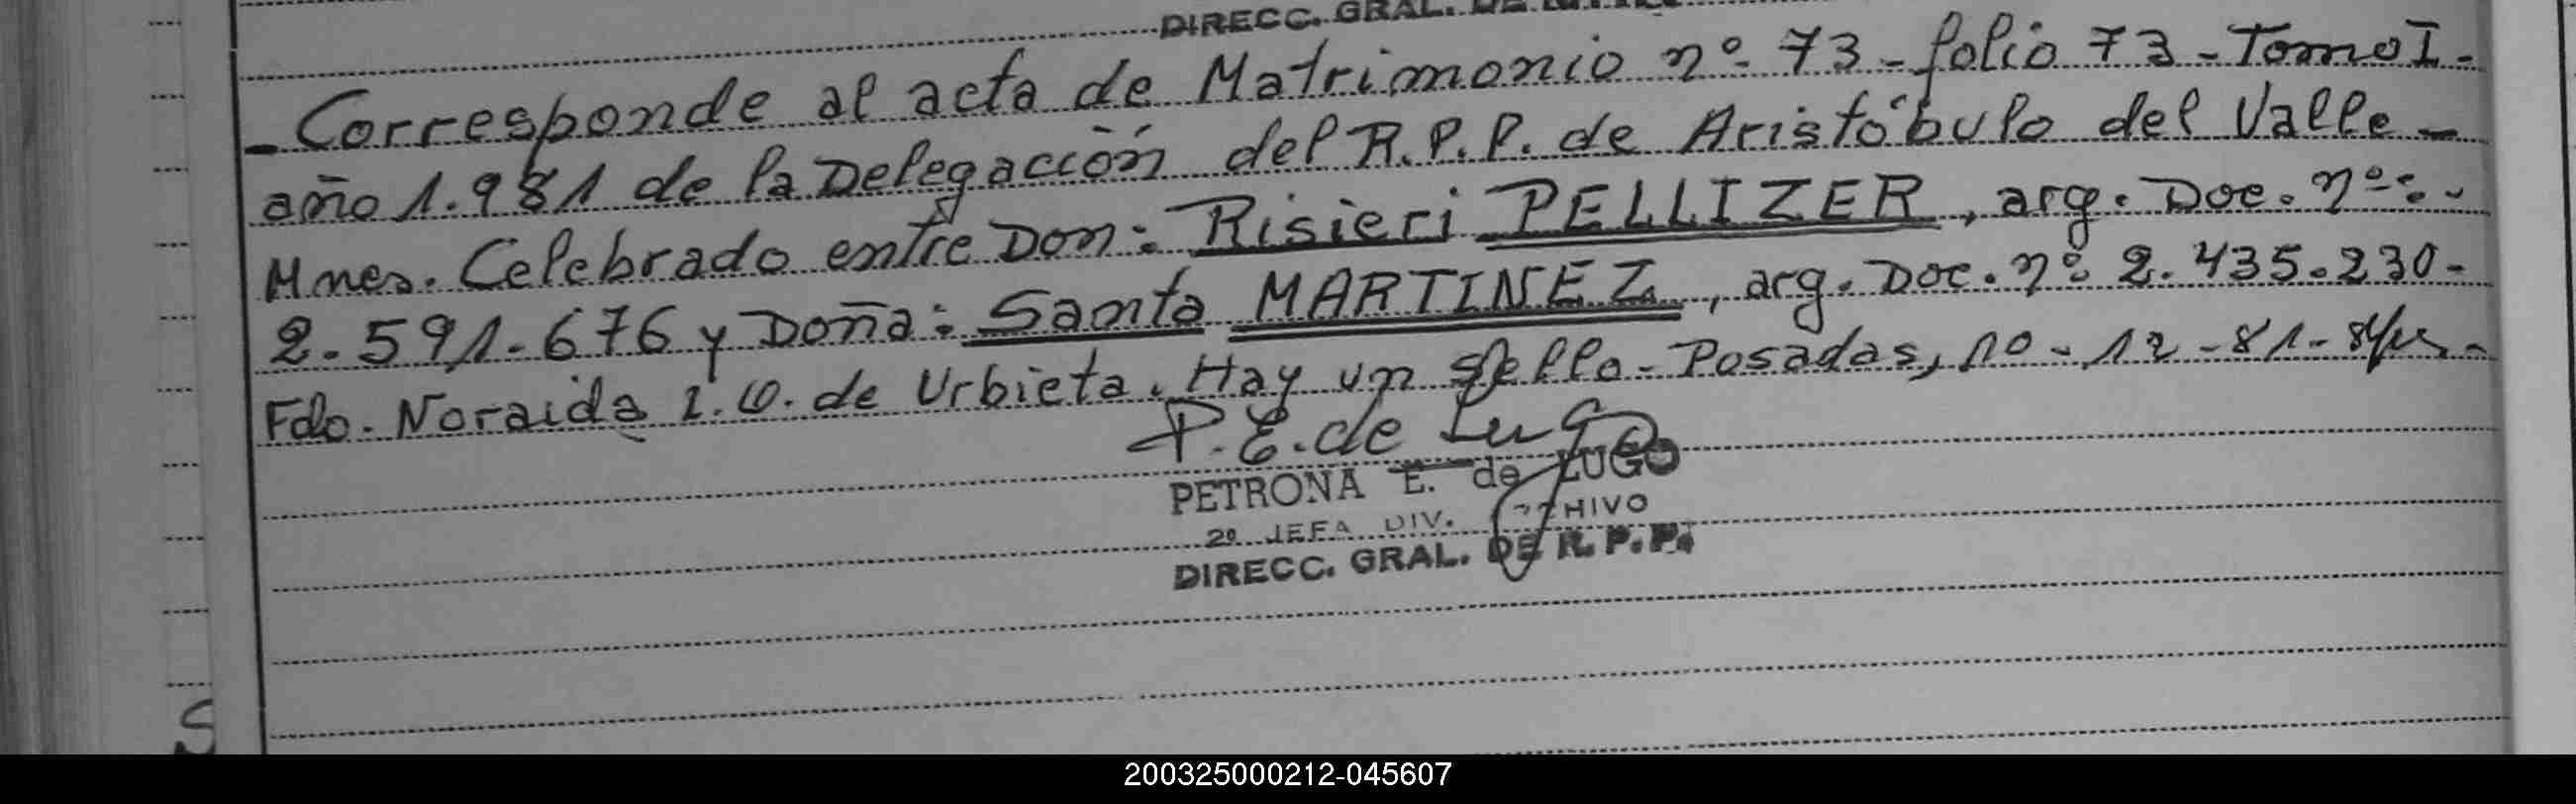 DIRECC. GRAL. DE
- Corresponde al acta de Matrimonio nº 73 - folio 73 - Tomo I -
año 1.981 de la Delegación del R.P.P. de Aristóbulo del Valle -
Mnes. Celebrado entre Don: Risieri PELLIZER, arg. Doc. nº: -
2.591.676 y Doña: Santa MARTINEZ, arg. Doc. nº 2.435.230 -
Fdo. Noraida I. O. de Urbieta. Hay un sello - Posadas, 10 - 12 - 81 -
P. E. de Lugo
PETRONA E. de LUGO
2º JEFA DIV. ARCHIVO
DIRECC. GRAL. DE R. P. P.
S
200325000212-045607